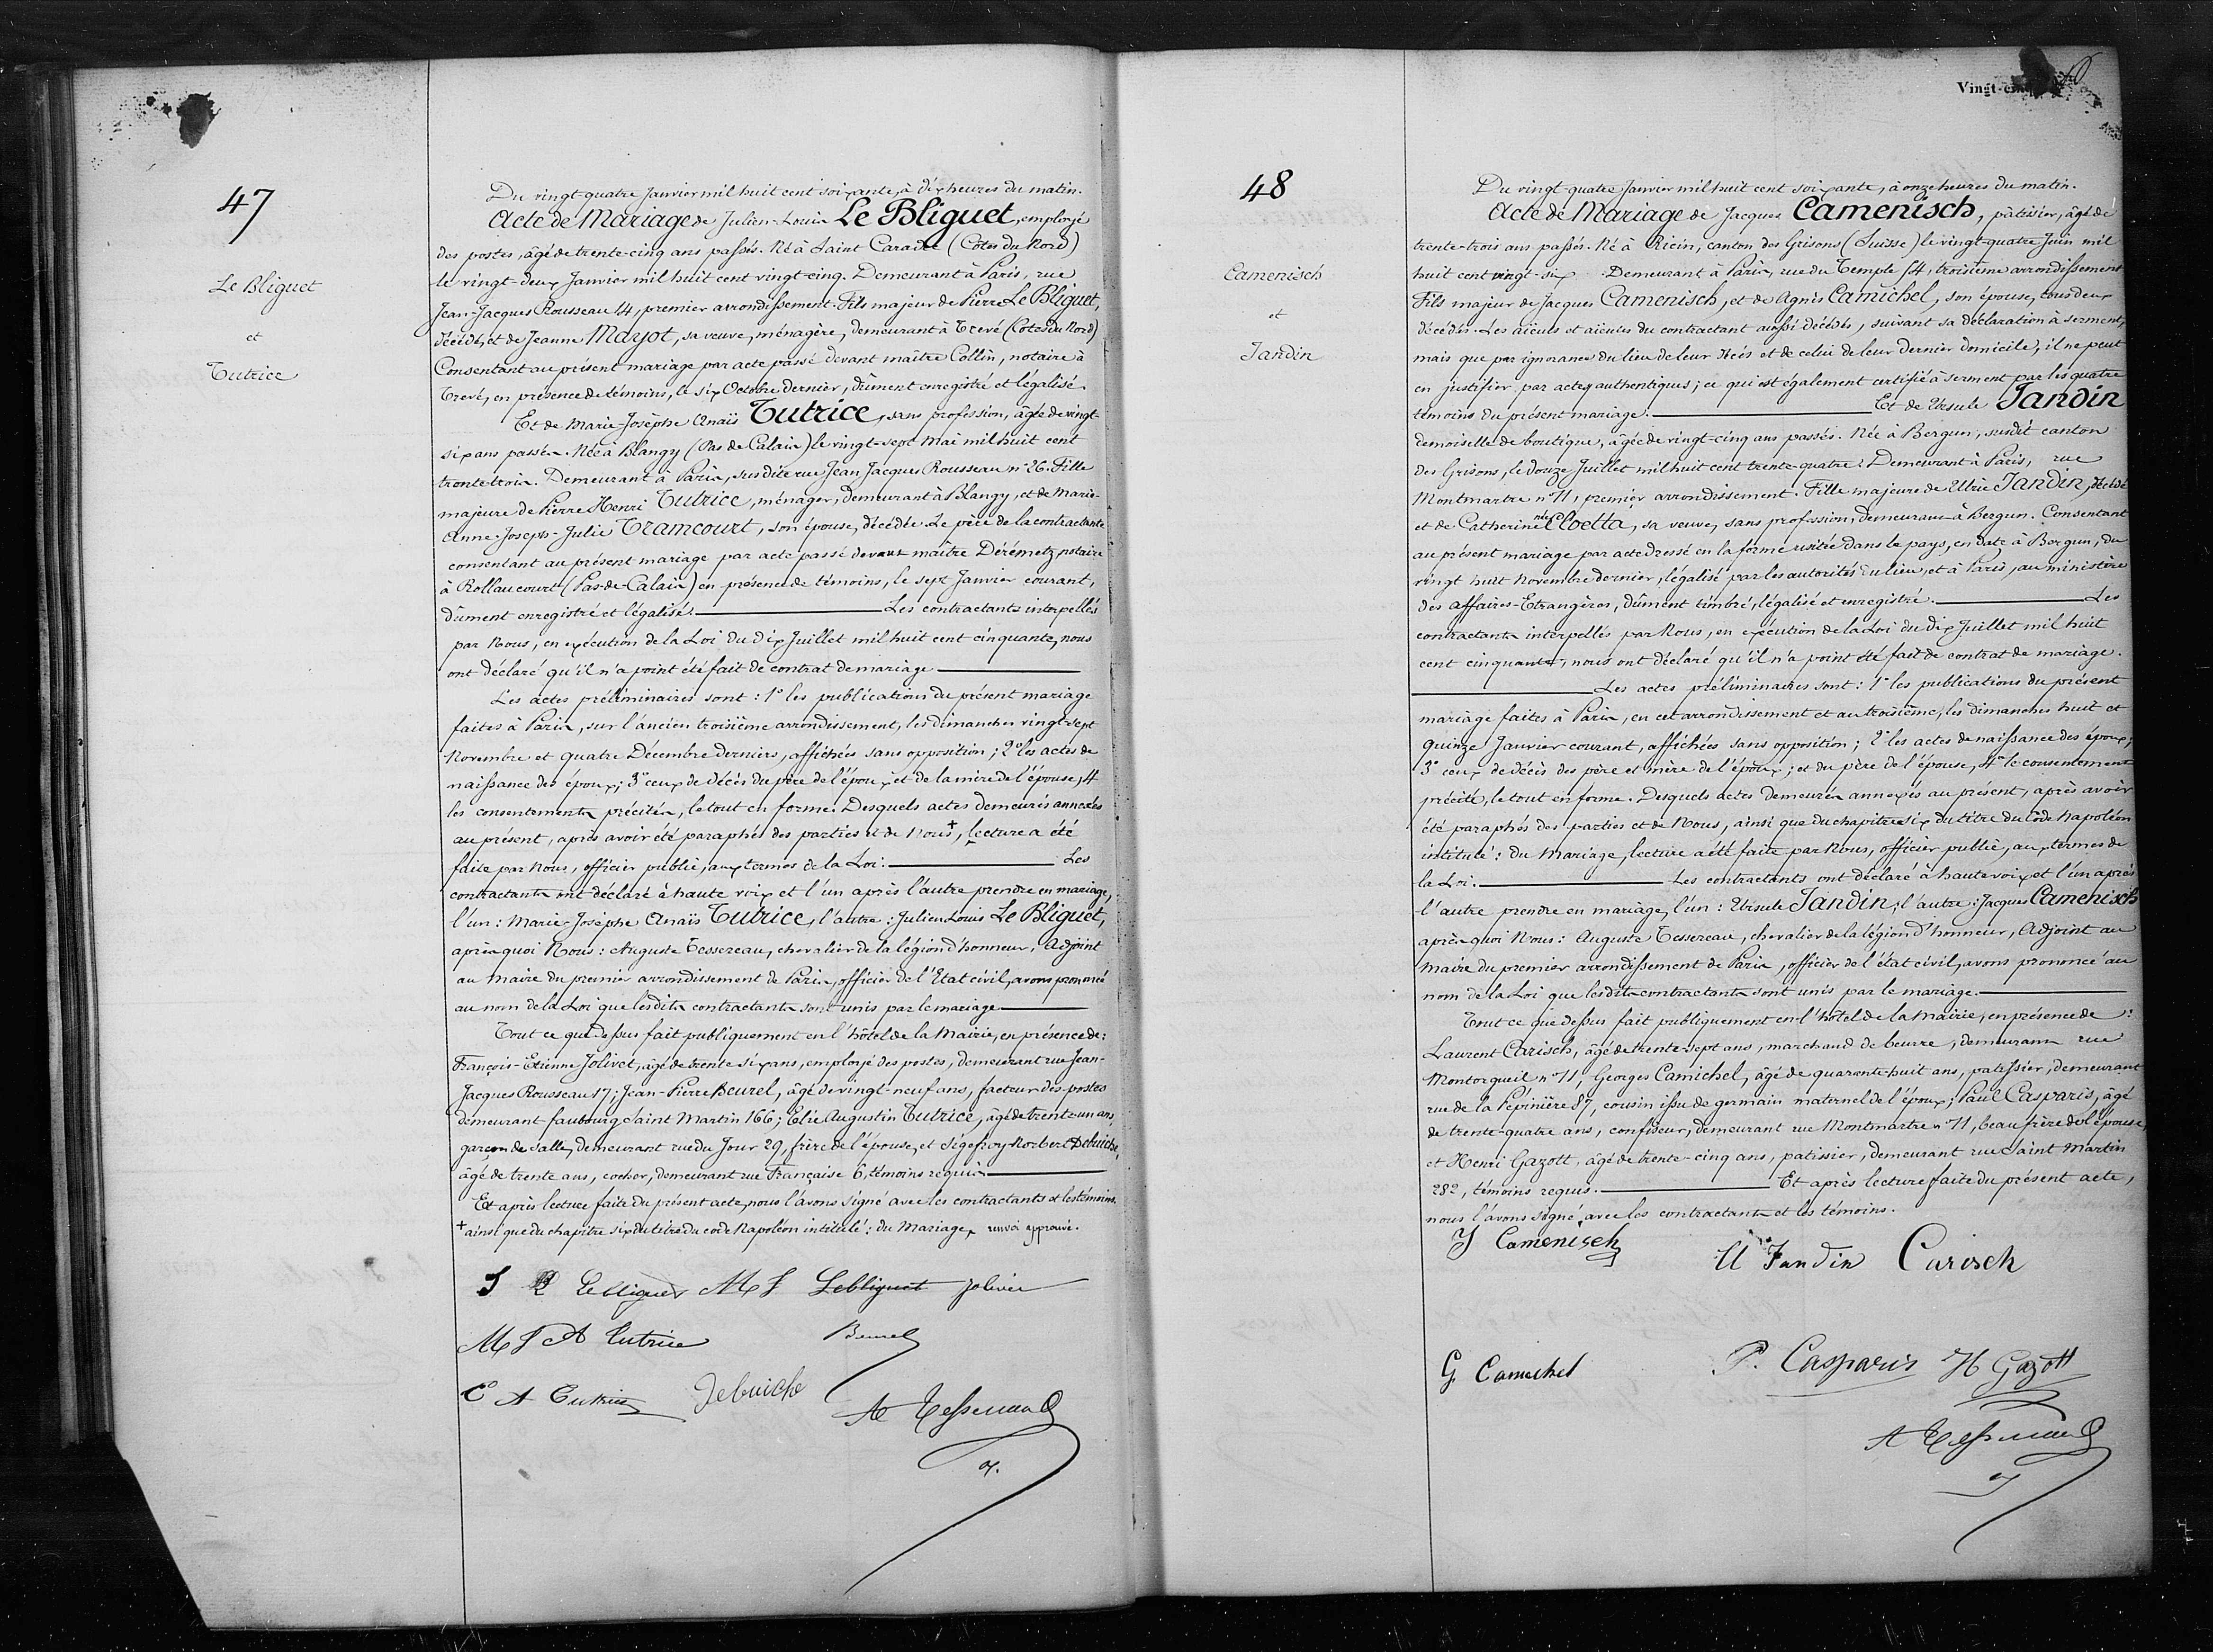 47
Le Bliguet
et
Tutrice
Du vingt-quatre Janvier mil huit cent soixante, à dix heures du matin.
Acte de Mariage de Julien-Louis Le Bliguet, employé
des postes, âgé de trente-cinq ans passés. Né à Saint Caradec (Côtes du Nord)
le vingt-deux Janvier mil huit cent vingt-cinq. Demeurant à Paris, rue
Jean-Jacques Rousseau 14, premier arrondissement. Fils majeur de Pierre Le Bliguet,
décédé, et de Jeanne Marjot, sa veuve, ménagère, demeurant à Trevé (Côtes du Nord)
Consentant au présent mariage par acte passé devant maître Collin, notaire à
Trevé, en présence de témoins, le six Octobre dernier, dûment enregistré et légalisé.
Et de Marie-Josèphe Anaïs Tutrice, sans profession, âgée de vingt-
six ans passés. Née à Blangy (Pas de Calais) le vingt-sept Mai mil huit cent
trente-trois. Demeurant à Paris, susdite rue Jean Jacques Rousseau n° 26. Fille
majeure de Pierre Henri Tutrice, ménager, demeurant à Blangy, et de Marie-
Anne-Joseph-Julie Tramcourt, son épouse, décédée. Le père de la contractante
consentant au présent mariage par acte passé devant maître Dérémetz notaire
à Rollancourt (Pas-de-Calais) en présence de témoins, le sept Janvier courant,
dûment enregistré et légalisé. Les contractants interpellés
par Nous, en exécution de la Loi du dix Juillet mil huit cent cinquante, nous
ont déclaré qu'il n'a point été fait de contrat de mariage
Les actes préliminaires sont : 1° les publications du présent mariage
faites à Paris, sur l'ancien troisième arrondissement, les dimanches vingt-sept
Novembre et quatre Décembre derniers, affichées sans opposition ; 2° les actes de
naissance des époux ; 3° ceux de décès du père de l'époux et de la mère de l'épouse, 4
les consentements précités, le tout en forme. Desquels actes demeurés annexés
au présent, après avoir été paraphés des parties et de Nous +, lecture a été
faite par Nous, officier public, aux termes de la Loi. Les
contractants ont déclaré à haute voix et l'un après l'autre prendre en mariage,
l'un : Marie-Josèphe Anaïs Tutrice, l'autre : Julien Louis Le Bliguet,
après quoi Nous : Auguste Tessereau, chevalier de la légion d'honneur, Adjoint
au Maire du premier arrondissement de Paris, officier de l'Etat civil, avons prononcé
au nom de la Loi que lesdits contractants sont unis par le mariage
Tout ce que dessus fait publiquement en l'hôtel de la Mairie, en présence de :
François-Etienne Jolivet, âgé de trente six ans, employé des postes, demeurant rue Jean-
Jacques Rousseau 17 ; Jean-Pierre Beurel, âgé de vingt-neuf ans, facteur des postes
demeurant faubourg Saint Martin 166 ; Elie Augustin Tutrice, âgé de trente-un ans,
garçon de salle, demeurant rue du Jour 29, frère de l'épouse, et Sigefroy Norbert Debuiche,
âgé de trente ans, cocher, demeurant rue Française 6, témoins requis
Et après lecture faite du présent acte, nous l'avons signé avec les contractants et les témoins.
+ ainsi que du chapitre six du titre du code Napoléon intitulé : du Mariage, renvoi approuvé.
J L Lebliguet M J Lebliguet Jolivet
M J A Tutrice Beurel
E A Tutrice Debuiche
A Tessereau
Vingt-cinq
48
Camenisch
et
Jandin
Du vingt-quatre Janvier mil huit cent soixante, à onze heures du matin.
Acte de Mariage de Jacques Camenisch, pâtissier, âgé de
trente-trois ans passés. Né à Ricin, canton des Grisons (Suisse) le vingt-quatre Juin mil
huit cent vingt-six. Demeurant à Paris, rue du Temple 14, troisième arrondissement
Fils majeur de Jacques Camenisch, et de Agnès Camichel, son épouse, tous deux
décédés. Les aïeuls et aïeules du contractant aussi décédés, suivant sa déclaration à serment,
mais que par ignorance du lieu de leur décès et de celui de leur dernier domicile, il ne peut
en justifier par actes authentiques ; ce qui est également certifié à serment par les quatre
témoins du présent mariage. Et de Ursule Jandin
demoiselle de boutique, âgée de vingt-cinq ans passés. Née à Bergun, susdit canton
des Grisons, le douze Juillet mil huit cent trente-quatre. Demeurant à Paris, rue
Montmartre n° 11, premier arrondissement. Fille majeure de Ulric Jandin, décédé
et de Catherine née Cloetta, sa veuve, sans profession, demeurant à Bergun. Consentant
au présent mariage par acte dressé en la forme usitée dans le pays, en date à Bergun, du
vingt huit Novembre dernier, légalisé par les autorités du lieu, et à Paris, au ministère
des affaires-Etrangères, dûment timbré, légalisé et enregistré. Les
contractants interpellés par Nous, en exécution de la Loi du dix Juillet mil huit
cent cinquante, nous ont déclaré qu'il n'a point été fait de contrat de mariage.
Les actes préliminaires sont : 1° les publications du présent
mariage faites à Paris, en cet arrondissement et au troisième, les dimanches huit et
quinze Janvier courant, affichées sans opposition ; 2° les actes de naissance des époux ;
3° ceux de décès des père et mère de l'époux ; et du père de l'épouse, 4° le consentement
précité, le tout en forme. Desquels actes demeurés annexés au présent, après avoir
été paraphés des parties et de Nous, ainsi que du chapitre six du titre du Code Napoléon
intitulé : du Mariage, lecture a été faite par Nous, officier public, aux termes de
la Loi. Les contractants ont déclaré à haute voix et l'un après
l'autre prendre en mariage, l'un : Ursule Jandin, l'autre : Jacques Camenisch
après quoi Nous : Auguste Tessereau, chevalier de la légion d'honneur, Adjoint au
Maire du premier arrondissement de Paris, officier de l'état civil, avons prononcé au
nom de la Loi que lesdits contractants sont unis par le mariage.
Tout ce que dessus fait publiquement en l'hôtel de la Mairie, en présence de :
Laurent Carisch, âgé de trente-sept ans, marchand de beurre, demeurant rue
Montorgueil n° 11, Georges Camichel, âgé de quarante-huit ans, patissier, demeurant
rue de la Pépinière 87, cousin issu de germain maternel de l'époux ; Paul Casparis, âgé
de trente-quatre ans, confiseur, demeurant rue Montmartre n° 11, beau frère de l'épouse,
et Henri Gazott, âgé de trente-cinq ans, patissier, demeurant rue Saint Martin
282, témoins requis. Et après lecture faite du présent acte,
nous l'avons signé avec les contractants et les témoins.
J Camenisch
U Jandin Carisch
G Camichel
P. Casparis H Gazott
A Tessereau